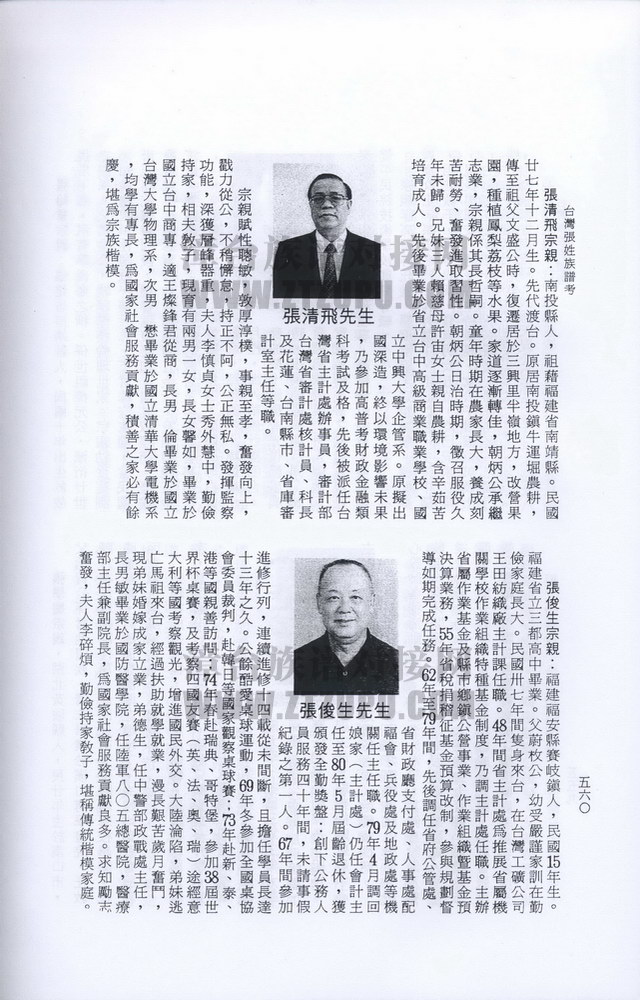 台灣張姓族譜考
張清飛宗親：南投縣人，祖藉福建省南靖縣。民國
廿七年十二月生。先代渡台。原居南投鎮牛運堀農耕，
傳至祖父文盛公時，復遷居於三興里半嶺地方，改營果
園，種植鳳梨荔枝等水果。家道逐漸轉佳，朝炳公承繼
志業，宗親係其長哲嗣。童年時期在農家長大，養成刻
苦耐勞、奮發進取習性。朝炳公日治時期，徵召服役久
年未歸。兄妹三人賴慈母許宙女士親自農耕，含辛茹苦
培育成人。先後畢業於省立台中高級商業職業學校、國
立中興大學企管系。原擬出
國深造，終以環境影響未果
，乃參加高普考財政金融類
科考試及格，先後被派任台
灣省主計處辦事員，審計部
台灣省審計處核計員、科長
及花蓮、台南縣市、省庫審
計室主任等職。
張清飛先生
宗親賦性聰敏，敦厚淳樸，事親至孝，奮發向上，
戳力從公，不稍懈怠，持正不阿，公正無私。發揮監察
功能，深獲層峰器重，夫人李慎貞女士秀外慧中，勤儉
持家，相夫教子，現育有兩男一女，長女馨如，畢業於
國立台中商專，適王燦鋒君從商，長男　倫畢業於國立
台灣大學物理系，次男　懋畢業於國立清華大學電機系
，均學有專長，爲國家社會服務貢獻，積善之家必有餘
慶，堪爲宗族楷模。
張俊生宗親：福建福安縣賽岐鎮人，民國15年生。
福建省立三都高中畢業。父蔚枚公，幼受嚴謹家訓在勤
儉家庭長大。民國卅七年間隻身來台，在台灣工礦公司
王田紡織廠主計課任職。48年間省主計處爲推展省屬機
關學校作業組織特種基金制度，乃調主計處任職。主辦
省屬作業基金及縣市鄉鎮公營事業、作業組織暨基金預
決算業務，55年省稅捐稽征基金預算改制，參與規劃督
導如期完成任務。62年至79年間，先後調任省府公管處、
省財政廳支付處、人事處配
福會、兵役處及地政處等機
關任主任職。79年4月調回
娘家（主計處）仍任會計主
任至80年5月屆齡退休，獲
頒發全勤獎盤：創下公務人
員服務四十年間，未請事假
紀錄之第一人。67年間參加
張俊生先生
進修行列，連續進修十四載從未間斷，且擔任學員長達
十三年之久。公餘酷愛桌球運動，69年冬參加全國桌協
會委員裁判，赴韓日等國家觀察桌球賽；73年赴新、泰、
港等國親善訪問；74年春赴瑞典、哥特堡，參加38屆世
界杯桌賽，及考察四國友賽（英、法、奧、瑞）途經意
大利等國考察觀光，增進國民外交。大陸淪陷，弟妹逃
亡馬祖來台，經過扶助就學就業，漫長艱苦歲月奮鬥，
現弟妹婚嫁成家立業，弟德生，任中警部政戰處主任，
長男敏畢業於國防醫學院，任陸軍八〇五總醫院，醫療
部主任兼副院長，爲國家社會服務貢獻良多。求知勵志
奮發，夫人李碎煩，勤儉持家教子，堪稱傳統楷模家庭。
五六〇